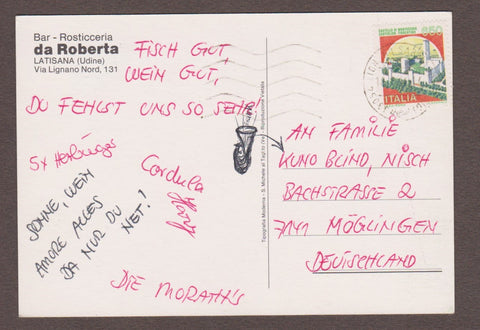 Bar - Rosticceria
da Roberta
LATISANA (Udine)
Via Lignano Nord, 131
FISCH GUT,
WEIN GUT,
DU FEHLST UNS SO SEHR!
Cordula
SONNE, WEIN
AMORE ALLES
DA NUR DU
NET!
DIE MORATH'S
Tipografia Moderna - S. Michele al Tagl.to (Ve) - Riproduzione Vietata
650
ITALIA
AN FAMILIE
KUNO BLIND, NISCH
BACHSTRASSE 2
7141 MÖGLINGEN
DEUTSCHLAND